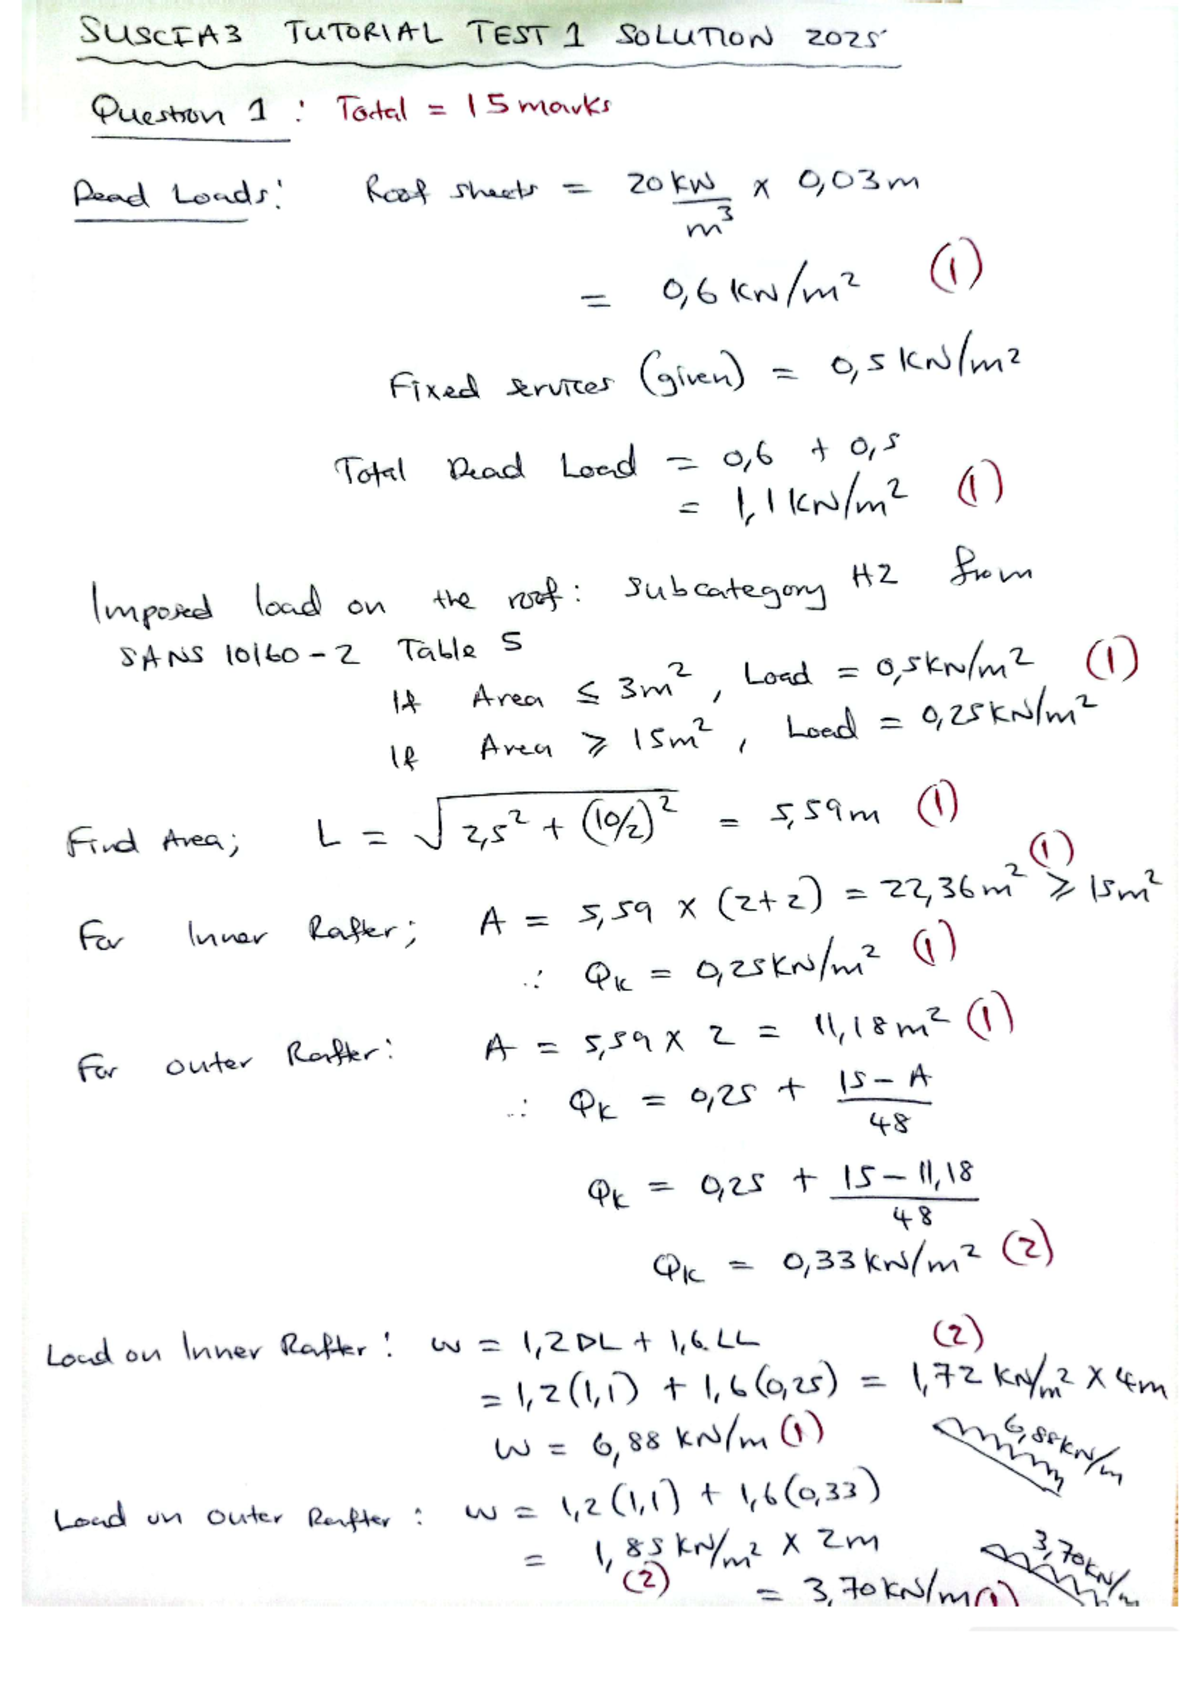 SUSCIA3 TUTORIAL TEST 1 SOLUTION 2025
Question 1 : Total = 15 marks
Dead Loads: Roof sheets = 20 kN/m³ x 0,03 m
= 0,6 kN/m² (1)
Fixed services (given) = 0,5 kN/m²
Total Dead Load = 0,6 + 0,5
= 1,1 kN/m² (1)
Imposed load on the roof: Subcategory H2 from
SANS 10160-2 Table 5
If Area ≤ 3m², Load = 0,5kN/m² (1)
If Area ≥ 15m², Load = 0,25kN/m²
Find Area; L = √(2,5² + (10/2)²) = 5,59m (1)
For Inner Rafter; A = 5,59 x (2+2) = 22,36m² (1) ≥ 15m²
∴ Qk = 0,25kN/m² (1)
For outer Rafter: A = 5,59 x 2 = 11,18m² (1)
∴ Qk = 0,25 + (15 - A)/48
Qk = 0,25 + (15 - 11,18)/48
Qk = 0,33 kN/m² (2)
Load on Inner Rafter: w = 1,2 DL + 1,6.LL (2)
= 1,2(1,1) + 1,6(0,25) = 1,72 kN/m² x 4m
W = 6,88 kN/m (1)
6,88kN/m
Load on outer Rafter : w = 1,2(1,1) + 1,6(0,33)
= 1,85 kN/m² x 2m
(2) = 3,70kN/m (1)
3,70kN/m